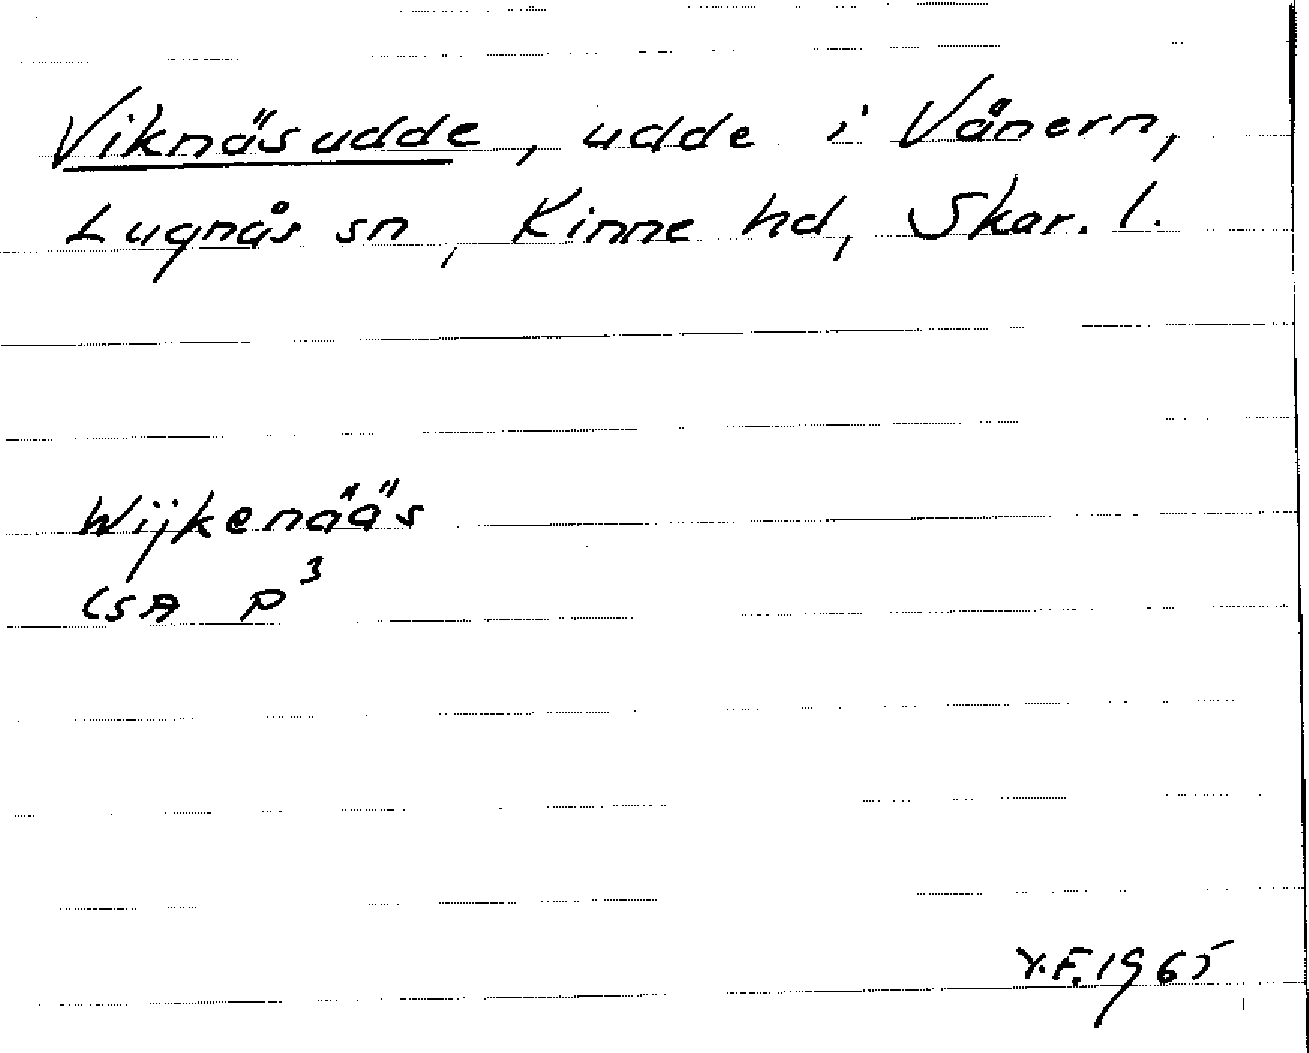 Viknäsudde, udde i Vänern,
Lugnås sn, Kinne hd, Skar. l.
Wijkenääs
LSA P³
V.F. 1965